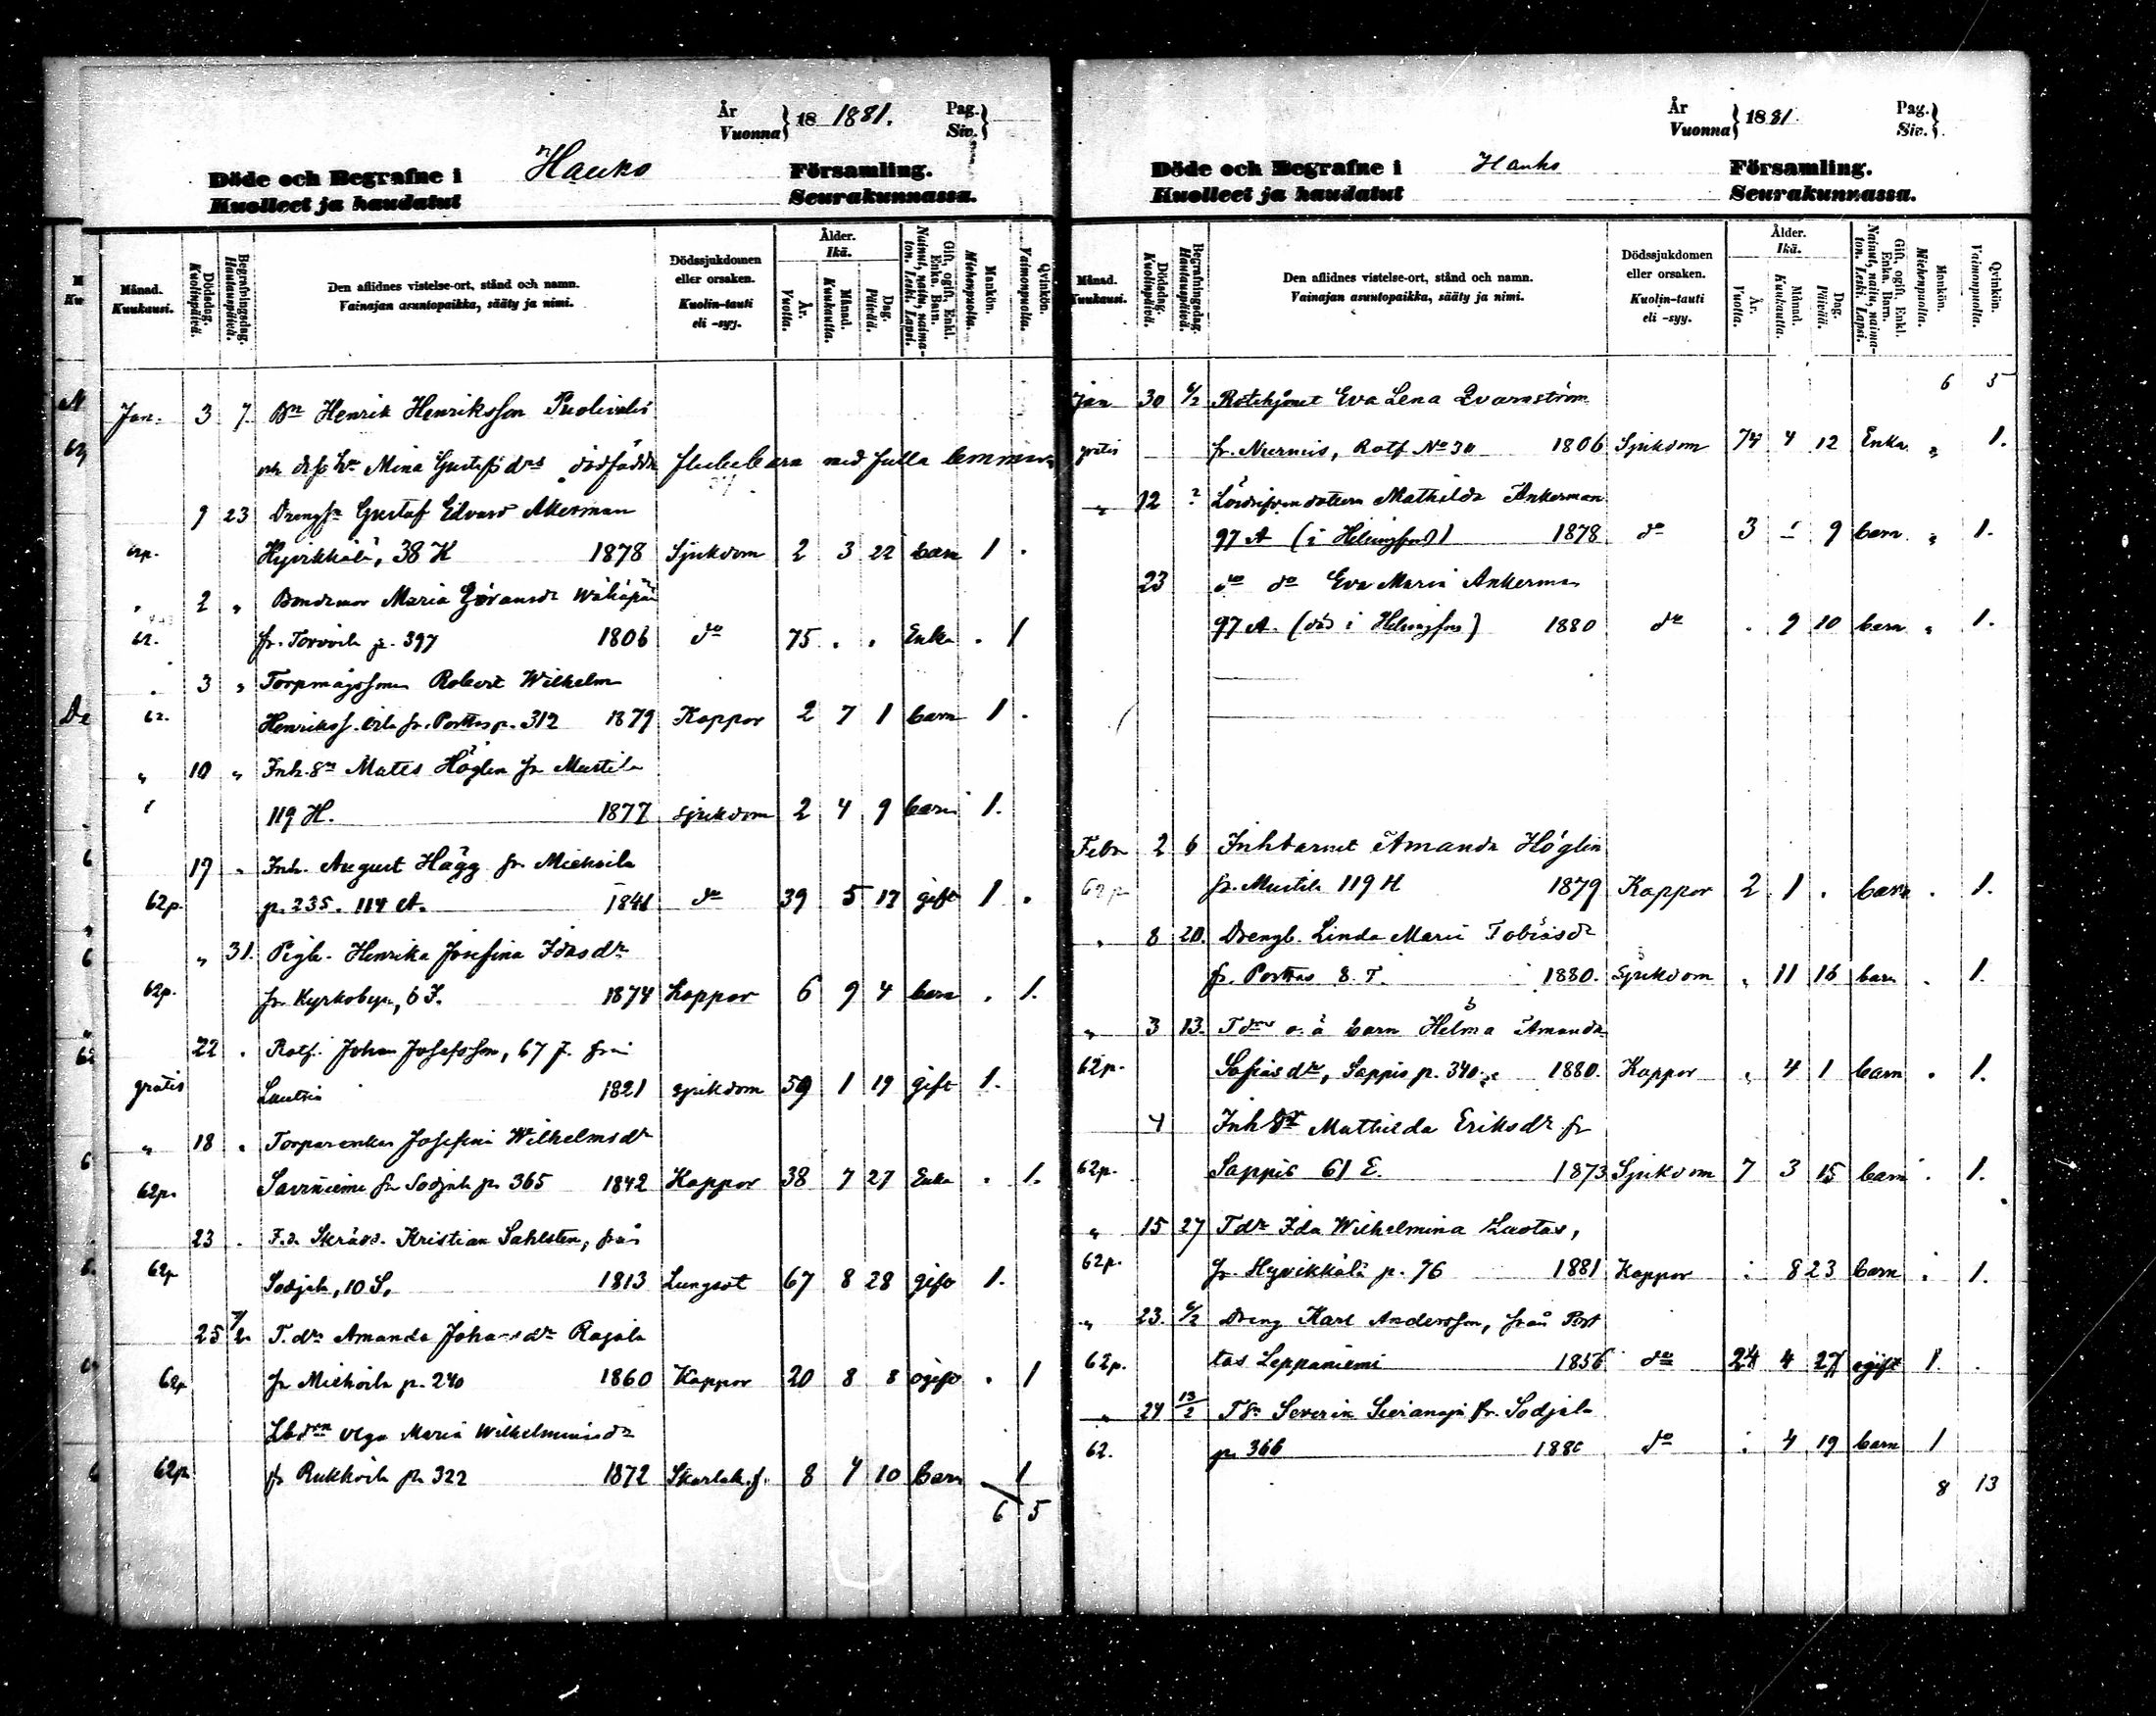 År
Vuonna } 18 1881. Pag. Siv. }
Döde och Begrafne i Hauho Församling.
Kuolleet ja haudatut Seurakunnassa.
Månad. Kuukausi. Dödsdag. Kuolinpäivä. Begrafningsdag. Hautauspäivä. Den aflidnes vistelse-ort, stånd och namn. Vainajan asuntopaikka, sääty ja nimi. Dödssjukdomen eller orsaken. Kuolin-tauti eli -syy. Ålder. Ikä. År. Vuotta. Månad. Kuukautta. Dag. Päivää. Gift, ogift, Enkl. Enka. Barn. Nainut, naitu, naimaton. Leski. Lapsi. Mankön. Miehenpuolta. Qvinkön. Vaimonpuolta.
Jan. 3 7. Bn Henrik Henriksson
Mina Gustafsdrs dödfödda med fulla
9 23 Drengsn Gustaf Edvard Åkerman
62p. Hyvikkälä, 38 K 1878 Sjukdom 2 3 22 barn 1 .
" 2 " Bondemor Maria Göransdr
62. fr. Torvoila p. 397 1806 do 75 . . Enka . 1
. 3 " Robert Wilhelm
62. fr. Porttas p. 312 1879 Koppor 2 7 1 barn 1 .
" 10 " Inh. sn Matts Höglin fr Mustila
119 H. 1877 sjukdom 2 4 9 barn 1.
17 " Inh. August Hägg fr Miehoila
62p. p. 235. 114 A. 1841 do 39 5 17 gift 1 .
" 31. Pigb. Henrika Josefina Idasdr
62p. fr Kyrkobyn, 6 I. 1874 Koppor 6 9 4 barn . 1.
22 . Rotf. Johan Josefsson, 67 J. från
gratis 1821 sjukdom 59 1 19 gift 1.
" 18 . Torparenkan Josefina Wilhelmsdr
62p. Saviniemi fr Sodjala p. 365 1842 Koppor 38 7 27 Enka . 1.
23 . F.d. Skrädd. Kristian Sahlsten, från
62p Sodjala, 10 S, 1813 Lungsot 67 8 28 gift 1.
25 7/2 T. dr Amanda Johansdr Rajala
62p fr Miehoila p. 240 1860 Koppor 20 8 8 ogift . 1
Olga Maria Wilhelminasdr
62p fr Rukkoila p. 322 1872 Skarlak.f. 8 4 10 barn . 1
6 5
År
Vuonna } 1881. Pag. Siv. }
Döde och Begrafne i Hauho Församling.
Kuolleet ja haudatut Seurakunnassa.
Månad. Kuukausi. Dödsdag. Kuolinpäivä. Begrafningsdag. Hautauspäivä. Den aflidnes vistelse-ort, stånd och namn. Vainajan asuntopaikka, sääty ja nimi. Dödssjukdomen eller orsaken. Kuolin-tauti eli -syy. Ålder. Ikä. År. Vuotta. Månad. Kuukautta. Dag. Päivää. Gift, ogift, Enkl. Enka. Barn. Nainut, naitu, naimaton. Leski. Lapsi. Mankön. Miehenpuolta. Qvinkön. Vaimonpuolta.
6 5
Jan 30 6/2 Rotehjonet Eva Lena Qvarnström
gratis fr. Nurmis, Rotf No 30 1806 Sjukdom 74 4 12 Enka " 1.
" 12 ? Mathilda Ankerman
97 A (i Helsingfors) 1878 do 3 9 barn " 1.
23 do do Eva Maria Ankerman
97 A. (död i Helsingfors) 1880 do . 9 10 barn " 1.
Febr 2 6 Inhbarnet Amanda Höglin
62p fr. Mustila 119 H 1879 Koppor 2 1 . barn . 1.
" 8 20. Drengb. Linda Maria Tobiasdr
fr. Porttas 8. T. 1880. sjukdom " 11 16 barn . 1.
" 3 13. o. ä barn Helma Amanda
62p. Sofiasdr, Sappis p. 340 1880. Koppor " 4 1 barn . 1.
4 Inh dr Mathilda Eriksdr fr
62p. Sappis 61 E. 1873 Sjukdom 7 3 15 barn . 1.
" 15 27 T dr Ida Wilhelmina Luotas,
62p. fr. Hyvikkälä p. 76 1881 Koppor . 8 23 barn . 1.
" 23. 6/2 Dreng Karl Andersson, från Port
62p. tas Leppäniemi 1856 do 24 4 27 ogift 1. .
" 24 13/2 T sn Severin fr. Sodjala
62. p. 366 1880 do . 4 19 barn 1
8 13